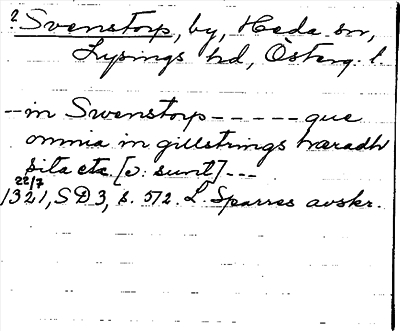 ? Svenstorp, by, Heda sn,
Lysings hd, Österg. l.
-- in Swenstorp - - - - - que
omnia in gillstrings hæradh
sita eta [ɔ: sunt] ---
22/7
1321, SD 3, s. 572. L. Sparres avskr.